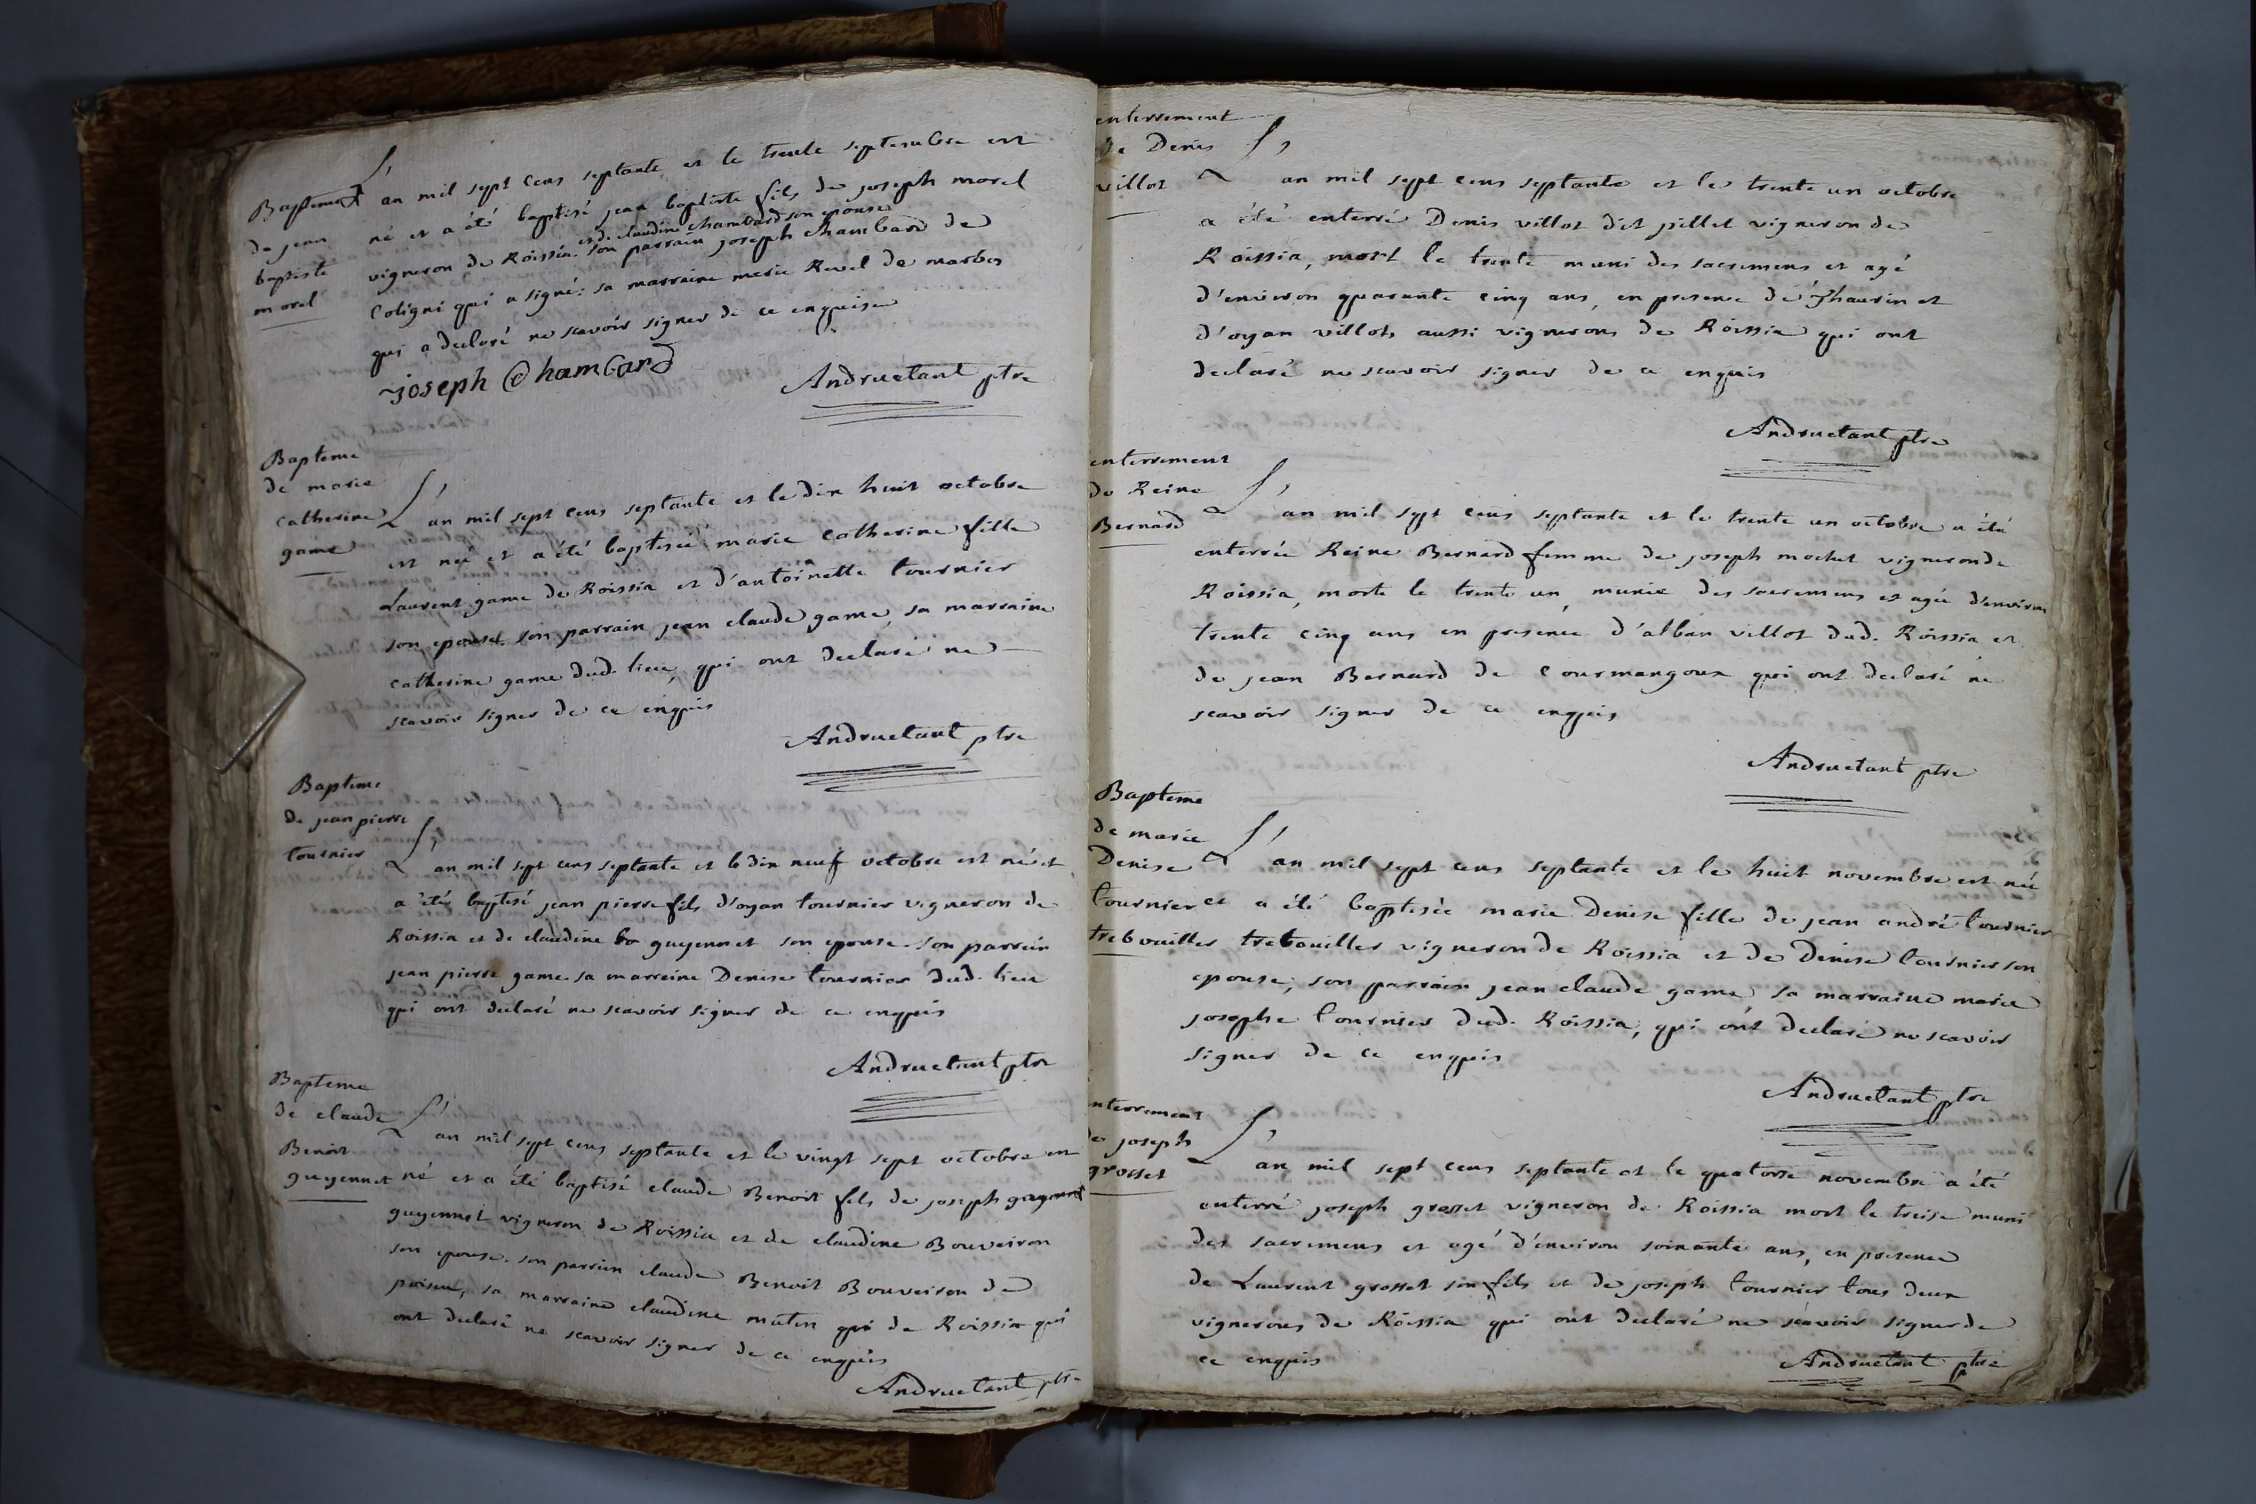 Bapteme
de jean
baptiste
morel
L'an mil sept cens septante et le trente septembre est
né et a été baptisé jean baptiste fils de joseph morel
et de claudine chambard son epouse
vigneron de Roissia. son parrain joseph chambard de
Coligni qui a signé: sa marraine marie Revel de marbos
qui a declaré ne scavoir signer de ce enquise
joseph Chambard
Andruetant ptre
Bapteme
de marie
catherine
game
L'an mil sept cens septante et le dix huit octobre
est neé et a été baptiseé marie catherine fille
Laurent game de Roissia et d'antoinette tournier
son epouse. son parrain jean claude game, sa marraine
catherine game dud. lieu, qui ont declaré ne
scavoir signer de ce enquis
Andruetant ptre
Bapteme
de jean pierre
tournier
L'an mil sept cens septante et le dix neuf octobre est né et
a été baptisé jean pierre fils d'oyan tournier vigneron de
Roissia et de claudine guyennet son epouse. son parrein
jean pierre game. sa marreine Denise tournier dud. lieu
qui ont declaré ne scavoir signer de ce enquis
Andruetant ptre
Bapteme
de claude
Benoit
guyennet
L'an mil sept cens septante et le vingt sept octobre est
né et a été baptisé claude Benoit fils de joseph
guyennet vigneron de Roissia et de claudine Bouveiron
son epouse. son parrein claude Benoit Bouveiron de
poisou, sa marraine claudine matin de Roissia qui
ont declaré ne scavoir signer de ce enquis
Andruetant ptre
enterrement
de Denis
villot
L'an mil sept cens septante et le trente un octobre
a été enterré Denis villot dit pillet vigneron de
Roissia, mort le trente muni des sacremens et agé
d'environ quarante cinq ans, en presence de thaurin et
d'oyan villots aussi vignerons de Roissia qui ont
declaré ne scavoir signer de ce enquis
Andruetant ptre
enterrement
de Reine
Bernard
L'an mil sept cens septante et le trente un octobre a été
enterrée Reine Bernard femme de joseph mochet vigneron de
Roissia, morte le trente un, munie des sacremens et agée d'environ
trente cinq ans en presence d'alban villot dud. Roissia et
de jean Bernard de Courmangoux qui ont declaré ne
scavoir signer de ce enquis
Andruetant ptre
Bapteme
de marie
Denise
tournier
trebouiller
L'an mil sept cens septante et le huit novembre est neé
et a été baptisée marie Denise fille de jean andré tournier
trebouiller vigneron de Roissia et de Denise tournier son
epouse; son parrain jean claude game sa marraine marie
josephe tournier dud. Roissia, qui ont declaré ne scavoir
signer de ce enquis
Andruetant ptre
enterrement
de joseph
grosset
L'an mil sept cens septante et le quatorse novembre a été
enterré joseph grosset vigneron de Roissia mort le treise muni
des sacremens et agé d'environ soixante ans, en presence
de Laurent grosset son fils et de joseph tournier tous deux
vignerons de Roissia qui ont declaré ne scavoir signer de
ce enquis
Andruetant ptre